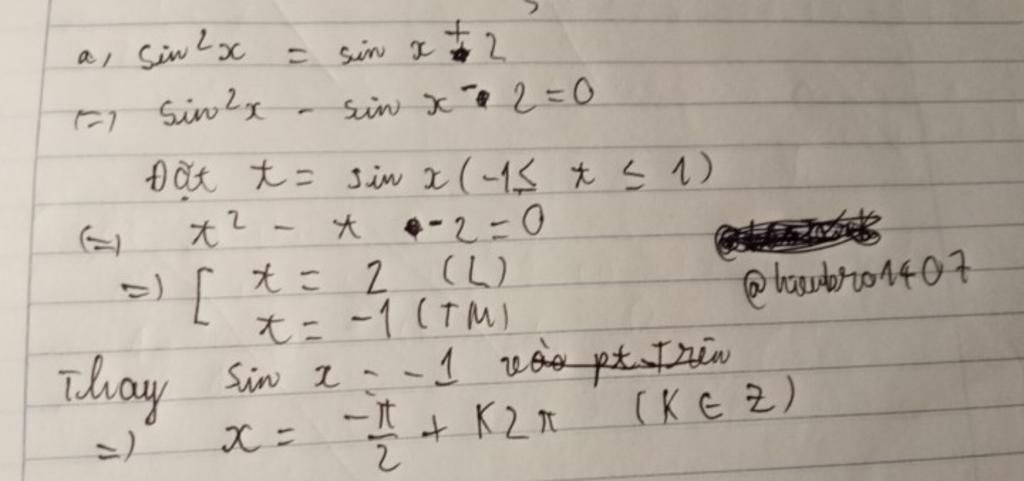 a, sin²x = sin x + 2
(=) sin²x - sin x - 2 = 0
Đặt t = sin x (-1 ≤ t ≤ 1)
(=) t² - t - 2 = 0
=) [ t = 2 (L)
t = -1 (TM)
@hieubro1407
Thay sin x = -1 vào pt trên
=) x = -π/2 + K2π (K ∈ Z)